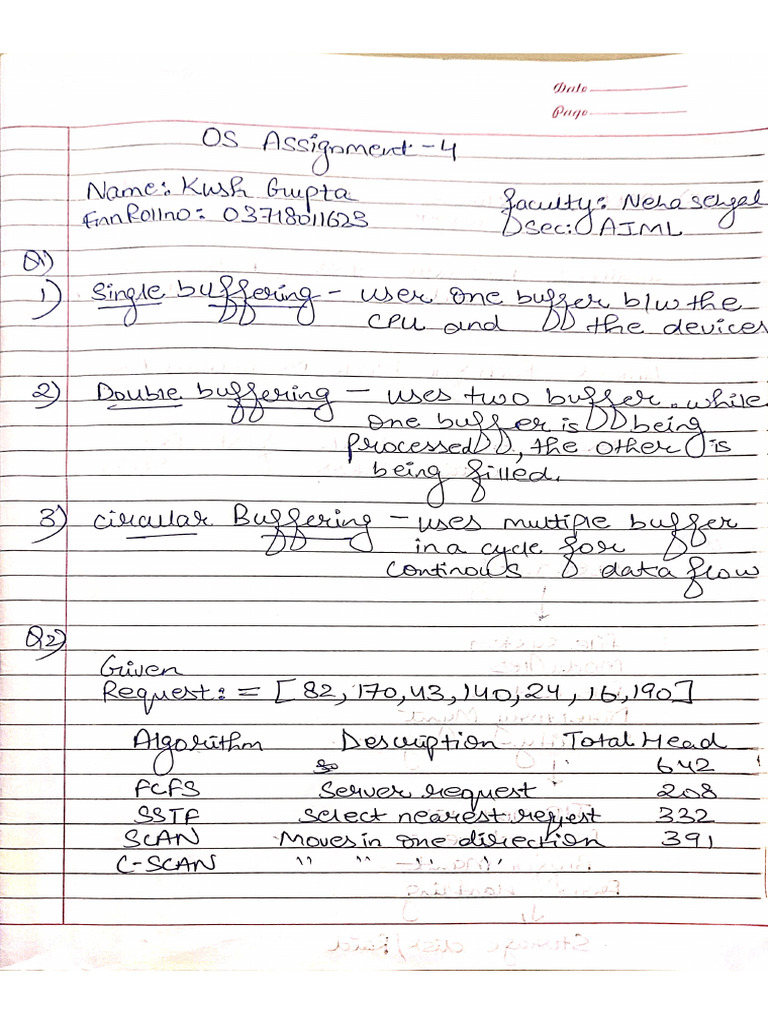 Date
Page
OS Assignment-4
Name: Kush Gupta
Faculty: Neha Sehgal
Enn Rollno: 03718011623
Sec: AIML
Q1)
1) Single buffering - user one buffer b/w the
CPU and the devices
2) Double buffering - uses two buffer. while
one buffer is being
Processed, the other is
being filled.
3) circular Buffering - uses multiple buffer
in a cycle for
continous data flow
Q2)
Given
Request: = [82, 170, 43, 140, 24, 16, 190]
Algorithm Description Total Head
642
FCFS Server request 208
SSTF Select nearest request 332
SCAN Moves in one direction 391
C-SCAN " " " "